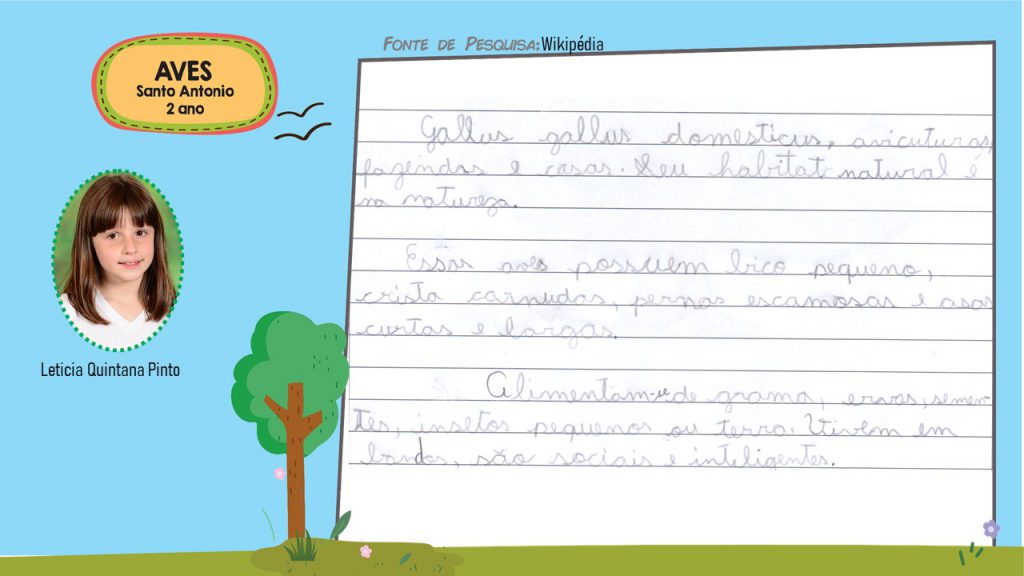 AVES
Santo Antonio
2 ano
Leticia Quintana Pinto
FONTE DE PESQUISA: Wikipédia
Gallus gallus domesticus, avicuturas,
fazendas e casas. Seu habitat natural é
na natureza.
Essas aves possuem bico pequeno,
crista carnudas, pernas escamosas e asas
curtas e largas.
Alimentam-se de grama, ervas, semen-
tes, insetos pequenos ou terra. Vivem em
bandos, são sociais e inteligentes.